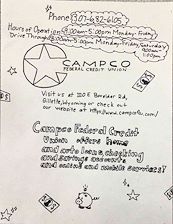 Phone 307-682-6105
Hours of Operation 9:00am-5:00pm Monday-Friday
Drive Through 8:00am-5:00pm Monday-Friday, Saturday
9:00am
1:00pm
CAMPCO
FEDERAL CREDIT UNION
Visit us at 300 E Boxelder Rd,
Gillette, Wyoming or check out
our website at http://www.campcofcu.com/
Campco Federal Credit
Union offers home
and auto loans, checking
and savings accounts
and online and mobile services!